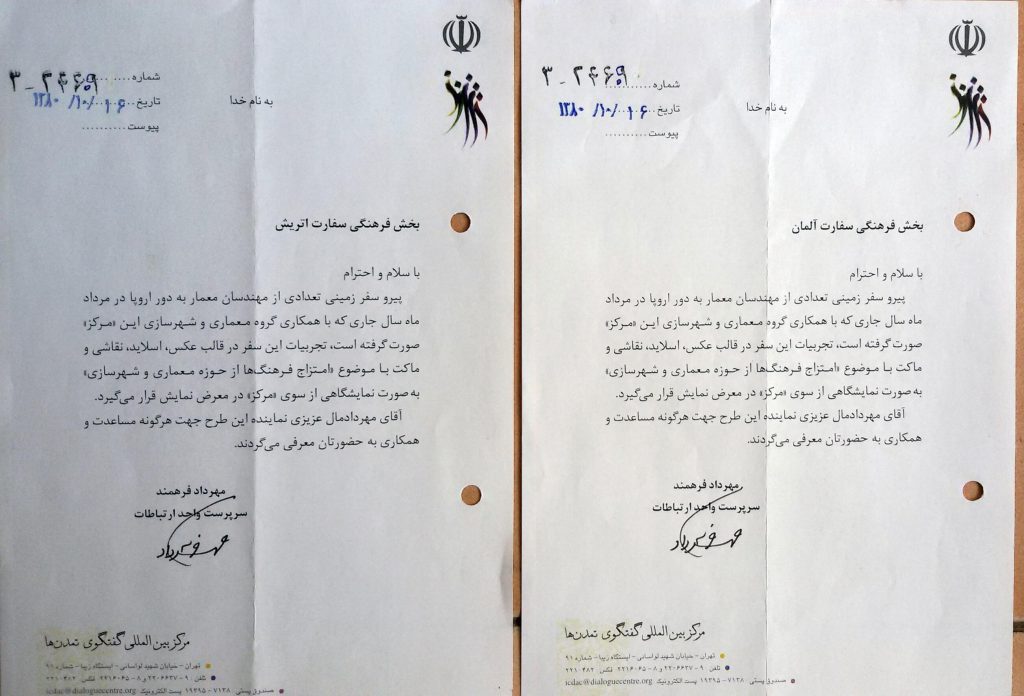 شماره.......... ۳-۲۴۶۹
تاریخ.......... ۱۳۸۰/۱۰/۱۶
پیوست..........
به نام خدا
بخش فرهنگی سفارت اتریش
با سلام و احترام
پیرو سفر زمینی تعدادی از مهندسان معمار به دور اروپا در مرداد
ماه سال جاری که با همکاری گروه معماری و شهرسازی این «مرکز»
صورت گرفته است، تجربیات این سفر در قالب عکس، اسلاید، نقاشی و
ماکت با موضوع «امتزاج فرهنگ‌ها از حوزه معماری و شهرسازی»
به صورت نمایشگاهی از سوی «مرکز» در معرض نمایش قرار می‌گیرد.
آقای مهردادمال عزیزی نماینده این طرح جهت هرگونه مساعدت و
همکاری به حضورتان معرفی می‌گردند.
مهرداد فرهمند
سرپرست واحد ارتباطات
مرکز بین المللی گفتگوی تمدن‌ها
تهران - خیابان شهید لواسانی - ایستگاه زیبا - شماره ۹۱
تلفن ۹ - ۲۲۰۶۶۳۷ و ۸ - ۲۲۱۶۰۶۵ فکس ۲۲۱۰۴۸۲
صندوق پستی ۷۱۳۸ - ۱۹۳۹۵ پست الکترونیک icdac@dialoguecentre.org
شماره.......... ۳-۲۴۶۹
تاریخ.......... ۱۳۸۰/۱۰/۱۶
پیوست..........
به نام خدا
بخش فرهنگی سفارت آلمان
با سلام و احترام
پیرو سفر زمینی تعدادی از مهندسان معمار به دور اروپا در مرداد
ماه سال جاری که با همکاری گروه معماری و شهرسازی این «مرکز»
صورت گرفته است، تجربیات این سفر در قالب عکس، اسلاید، نقاشی و
ماکت با موضوع «امتزاج فرهنگ‌ها از حوزه معماری و شهرسازی»
به صورت نمایشگاهی از سوی «مرکز» در معرض نمایش قرار می‌گیرد.
آقای مهردادمال عزیزی نماینده این طرح جهت هرگونه مساعدت و
همکاری به حضورتان معرفی می‌گردند.
مهرداد فرهمند
سرپرست واحد ارتباطات
مرکز بین المللی گفتگوی تمدن‌ها
تهران - خیابان شهید لواسانی - ایستگاه زیبا - شماره ۹۱
تلفن ۹ - ۲۲۰۶۶۳۷ و ۸ - ۲۲۱۶۰۶۵ فکس ۲۲۱۰۴۸۲
صندوق پستی ۷۱۳۸ - ۱۹۳۹۵ پست الکترونیک icdac@dialoguecentre.org